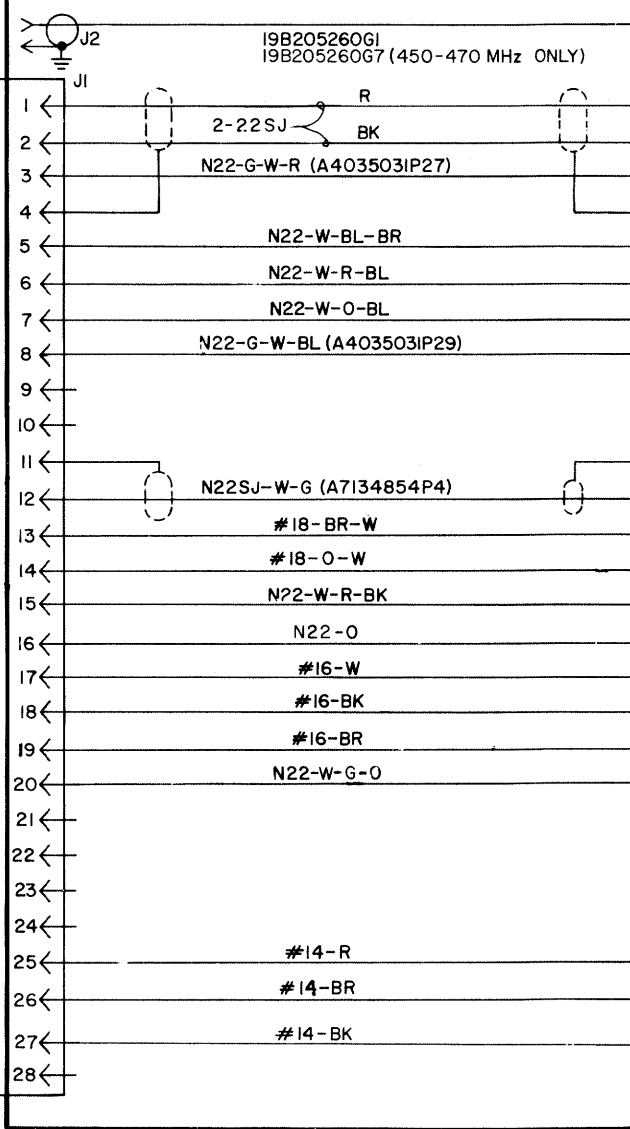 J2
19B205260G1
19B205260G7 (450-470 MHz ONLY)
J1
1 R
2-22SJ
2 BK
3 N22-G-W-R (A4035031P27)
4
5 N22-W-BL-BR
6 N22-W-R-BL
7 N22-W-O-BL
8 N22-G-W-BL (A4035031P29)
9
10
11
12 N22SJ-W-G (A7134854P4)
13 #18-BR-W
14 #18-O-W
15 N22-W-R-BK
16 N22-O
17 #16-W
18 #16-BK
19 #16-BR
20 N22-W-G-O
21
22
23
24
25 #14-R
26 #14-BR
27 #14-BK
28